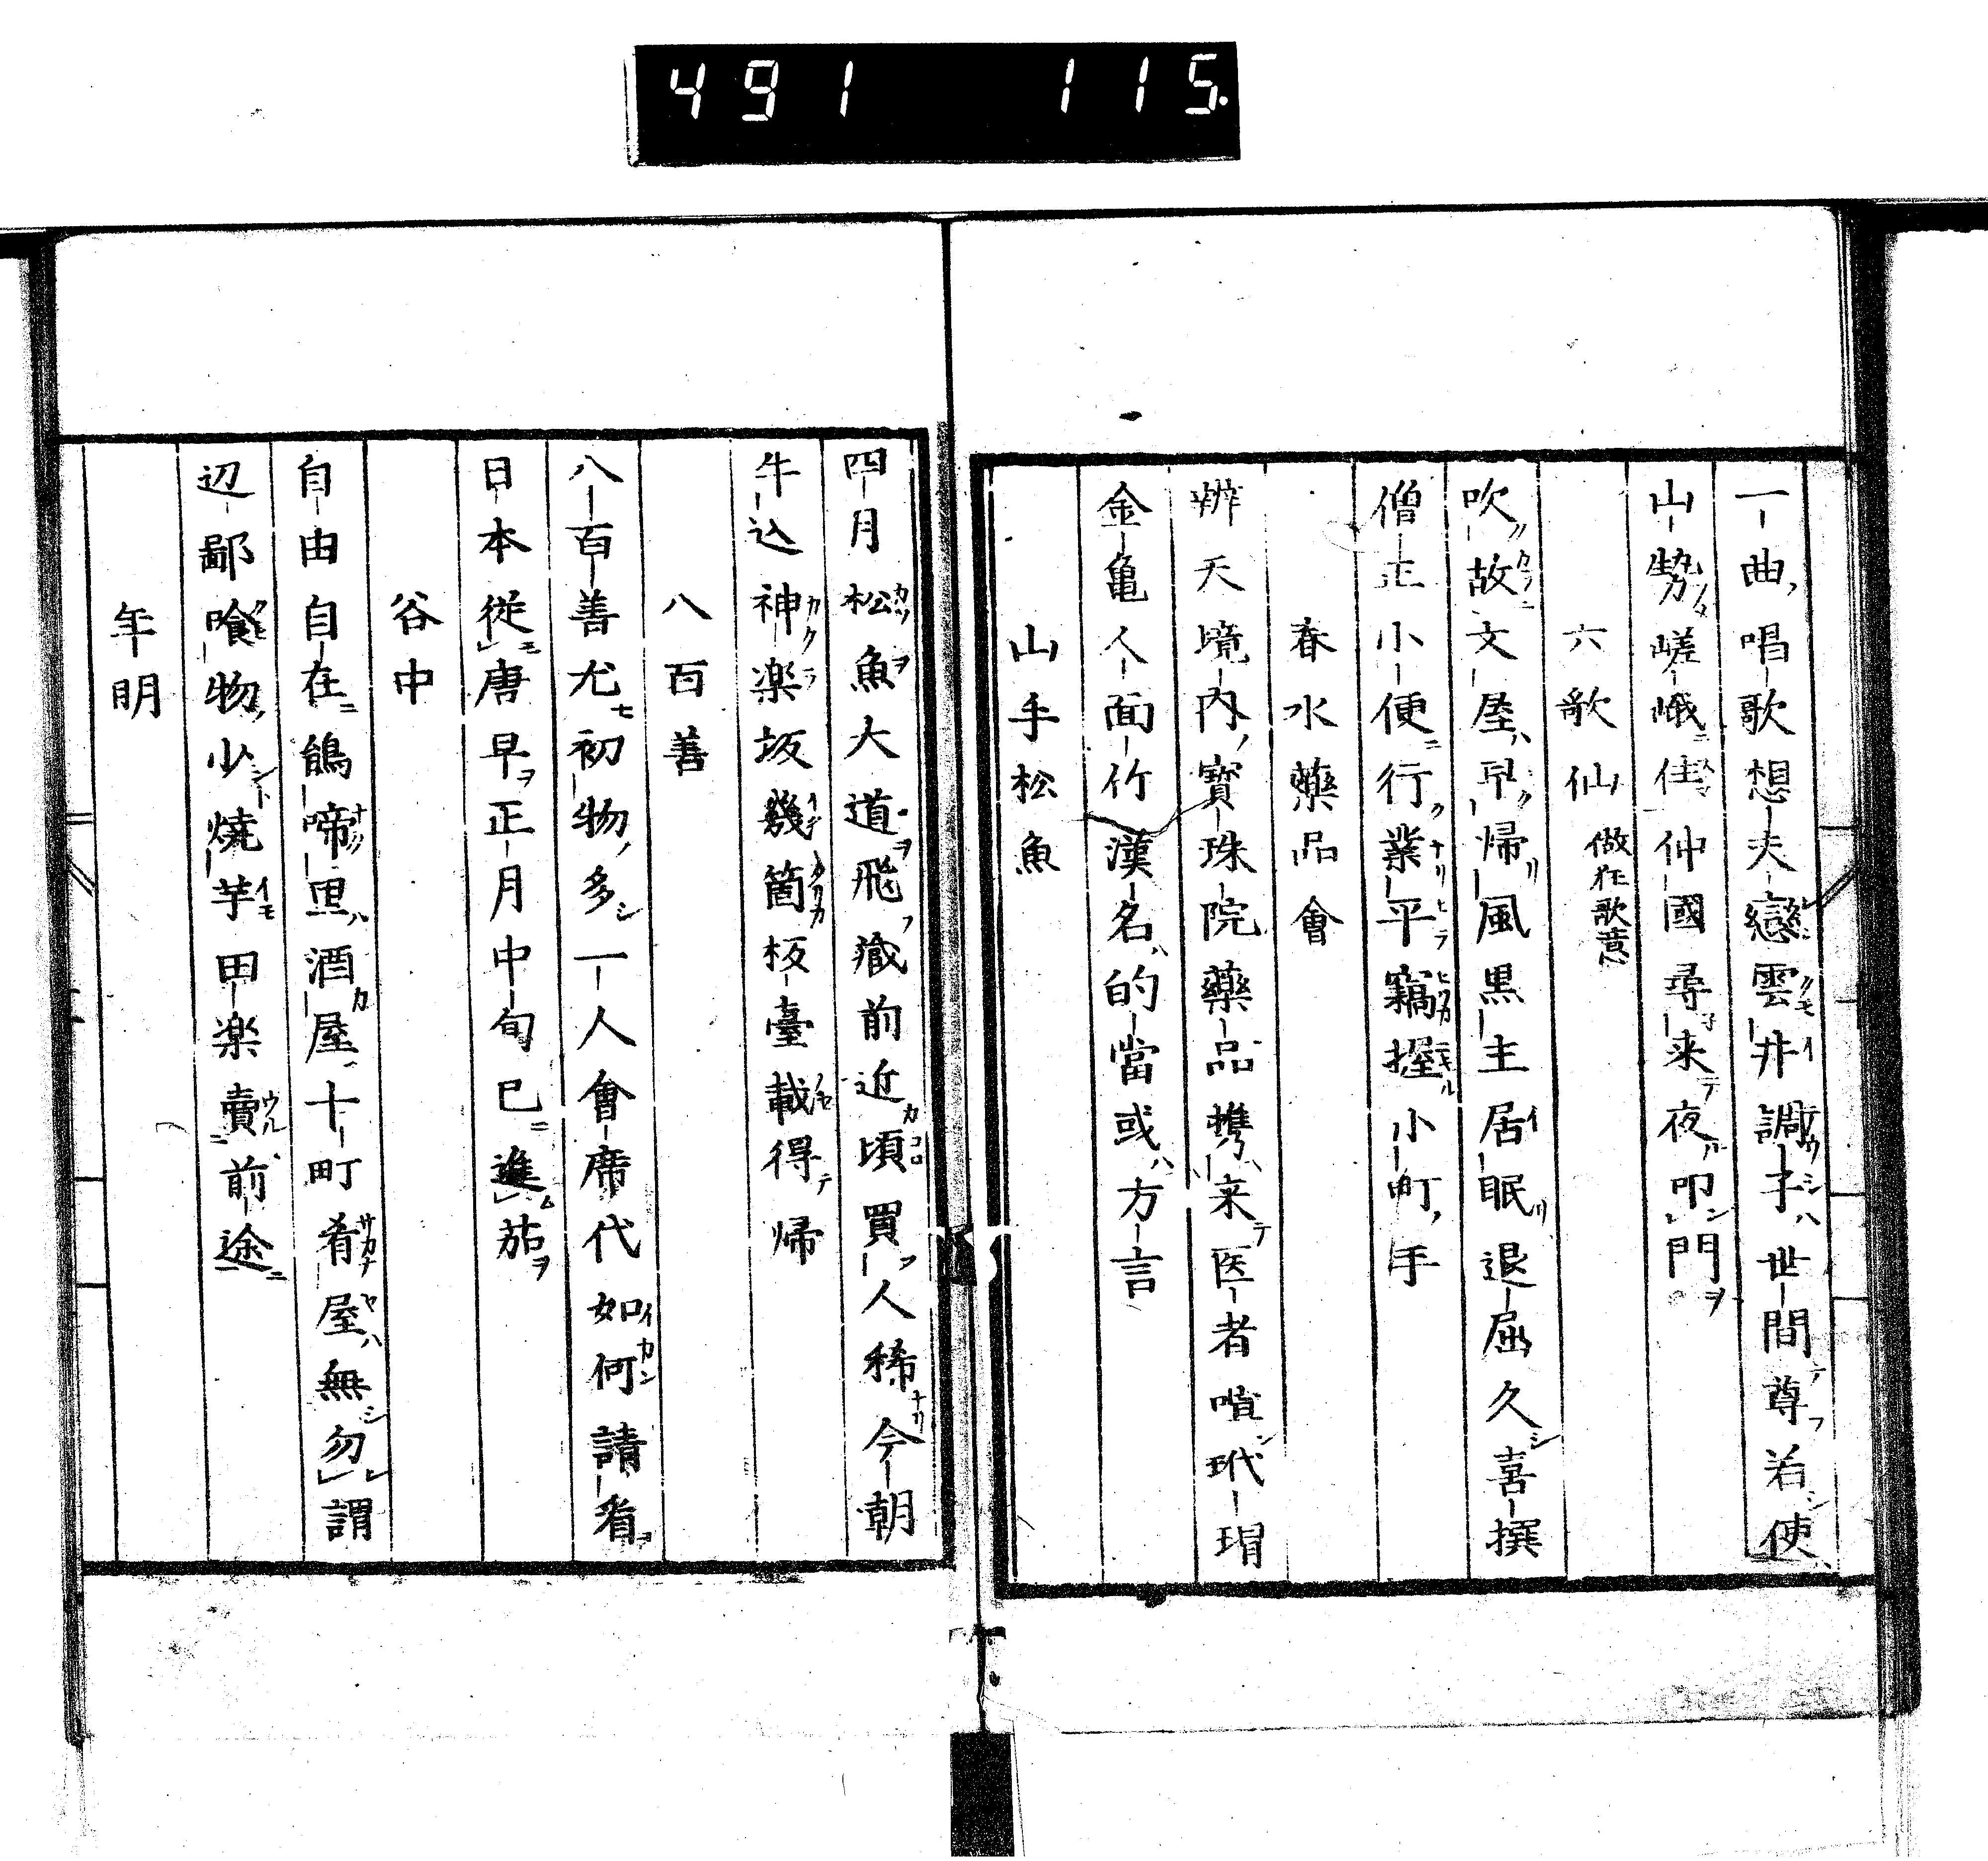 491 115.
一曲唱歌想夫戀雲井調子世間尊若使
山勢嵯峨住仲國尋来夜叩門
六歌仙 倣狂歌意
吹故文屋早帰風黒主居眠退屈久喜撰
僧正小便行業平竊握小町手
春水藥品會
辨天境内寳珠院藥品携来医者噴玳瑁
金亀人面竹漢名的當或方言
山手松魚
四月松魚大道飛藏前近頃買人稀今朝
牛込神楽坂幾箇板臺載得帰
八百善
八百善尤初物多一人會席代如何請看
日本従唐早正月中旬已進茄
谷中
自由自在鵃啼里酒屋十町肴屋無勿謂
辺鄙喰物少焼芋田楽賣前途
年明